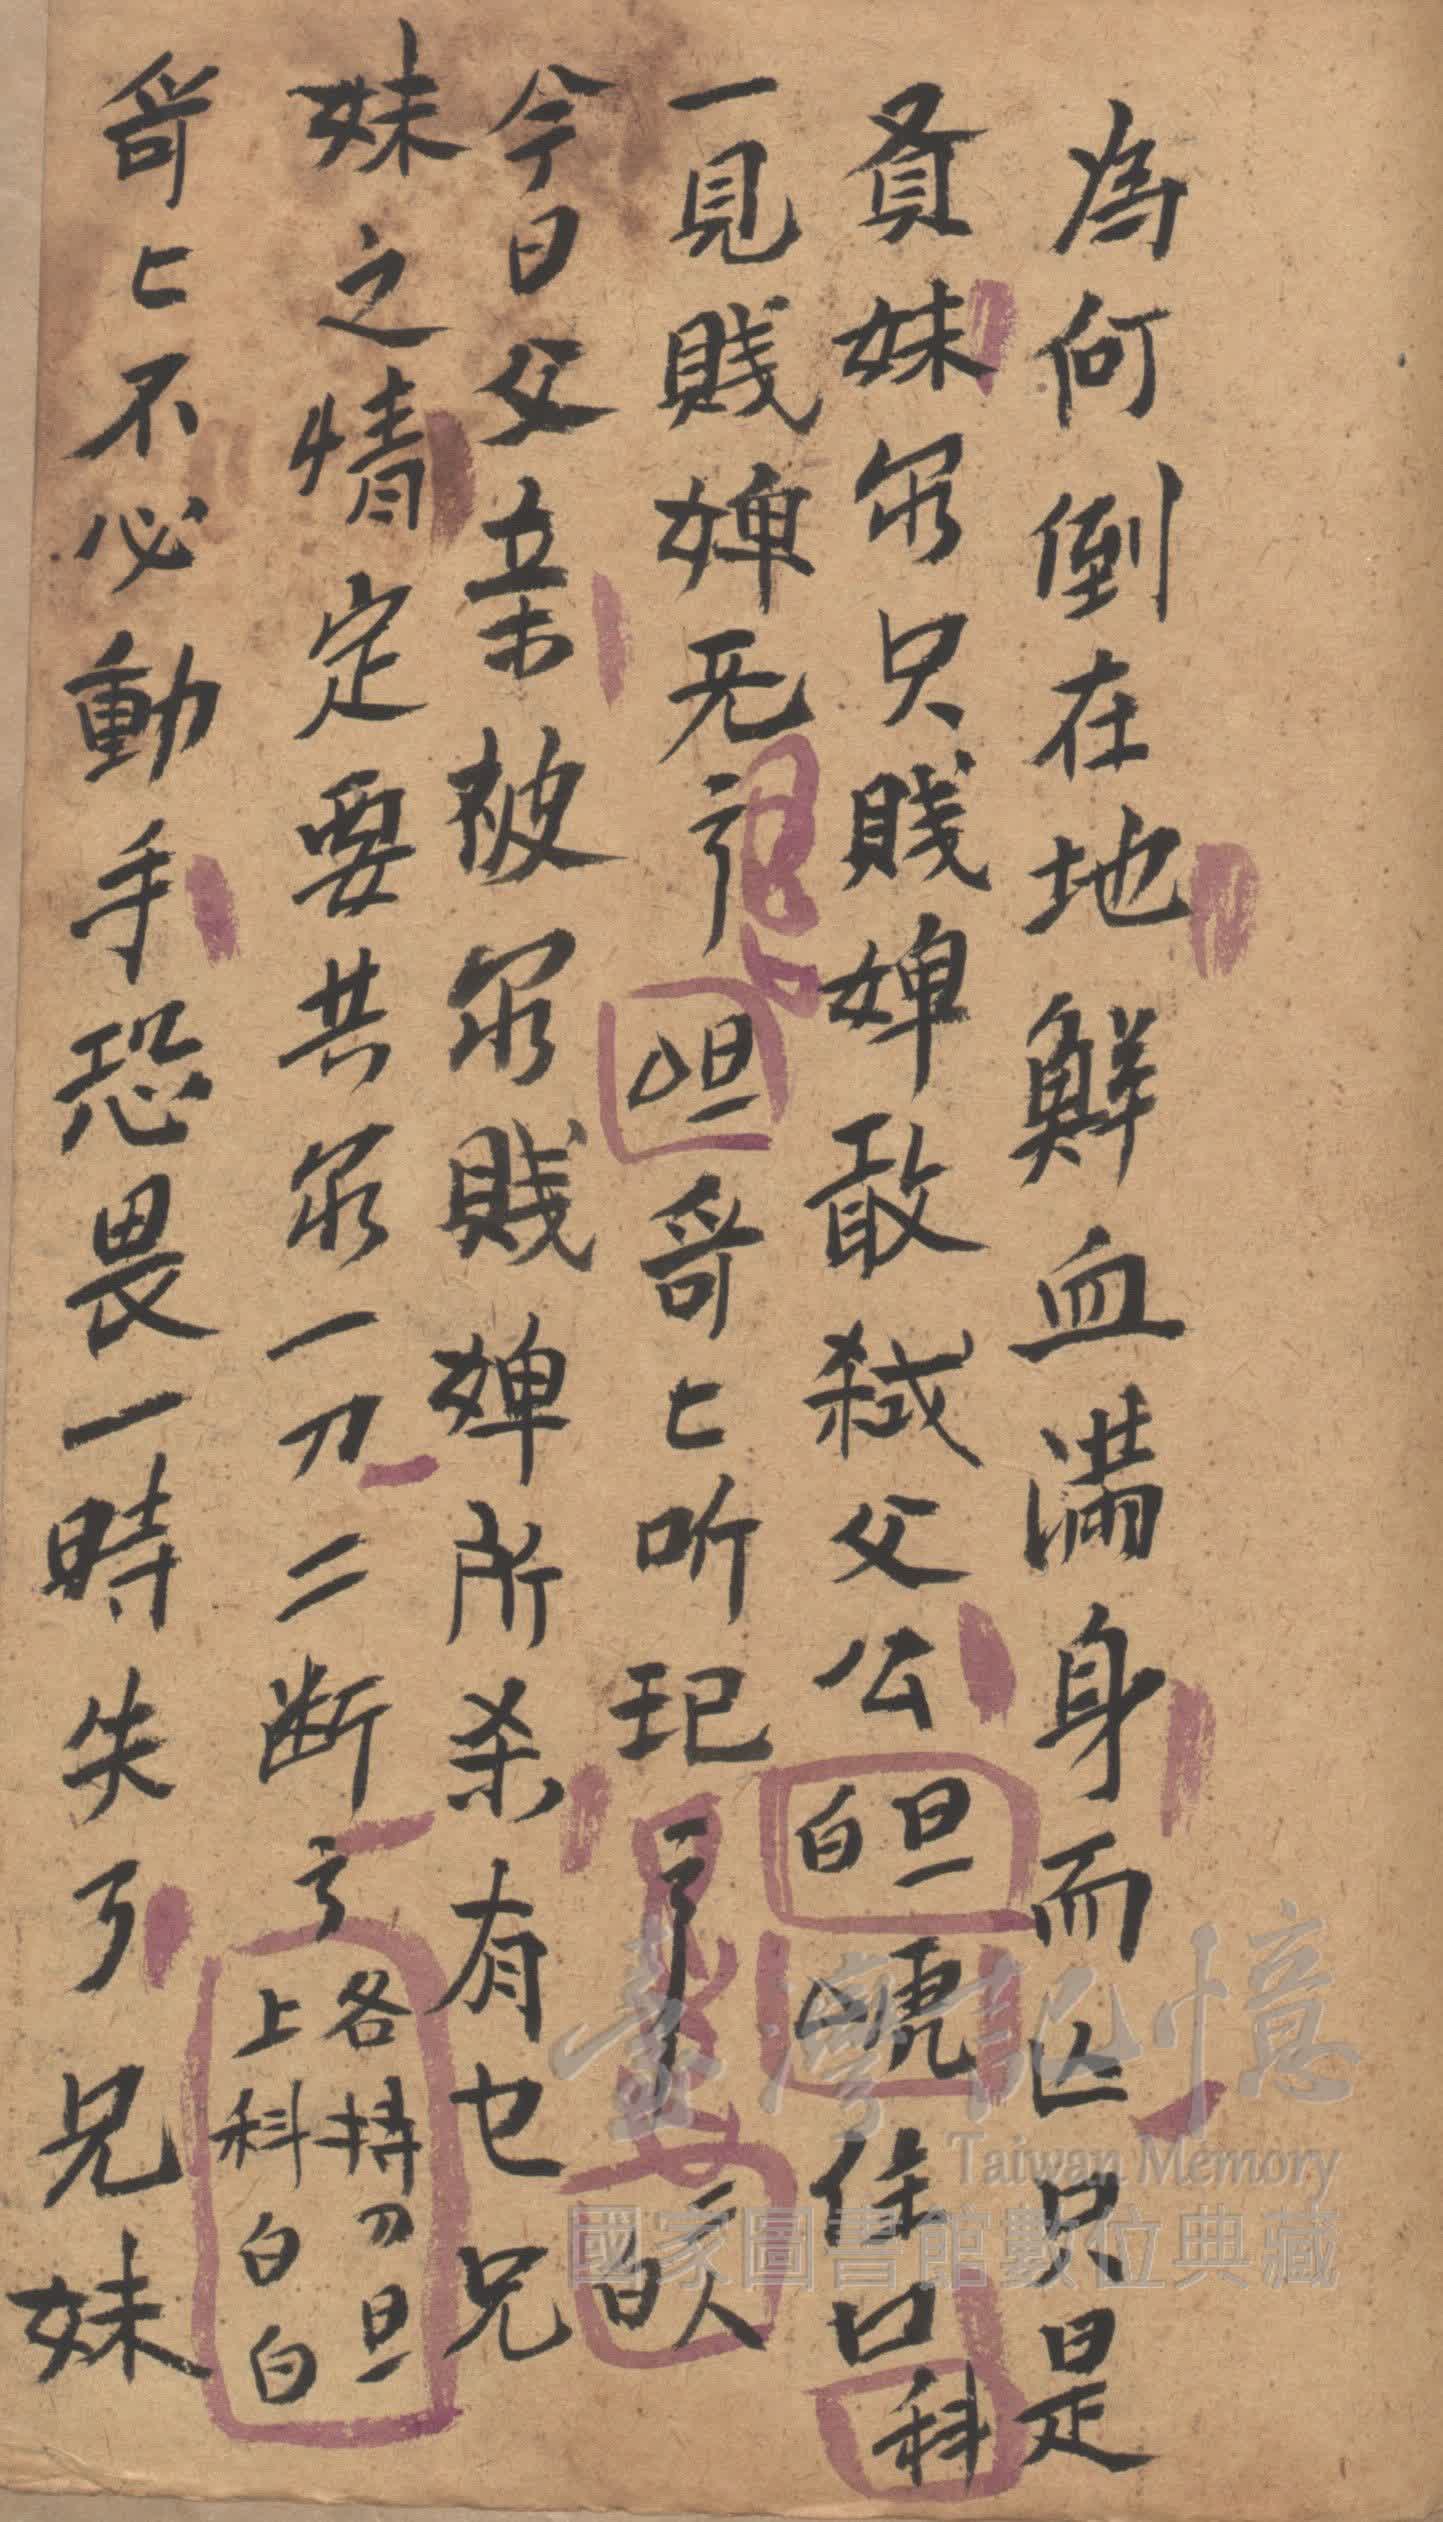 為何倒在地鮮血滿身而亾只是
貟妹尔只賤婢敢弒父公旦白唬△住口科
一見賤婢无亍旦△哥匕听玘亍三人白
今日父亲被尔賤婢所杀有乜兄
妹之情定要共尔一刀二断亍各持刀旦上科白白
哥匕不必動手恐畏一時失了兄妹
臺灣記憶
Taiwan Memory
國家圖書館數位典藏